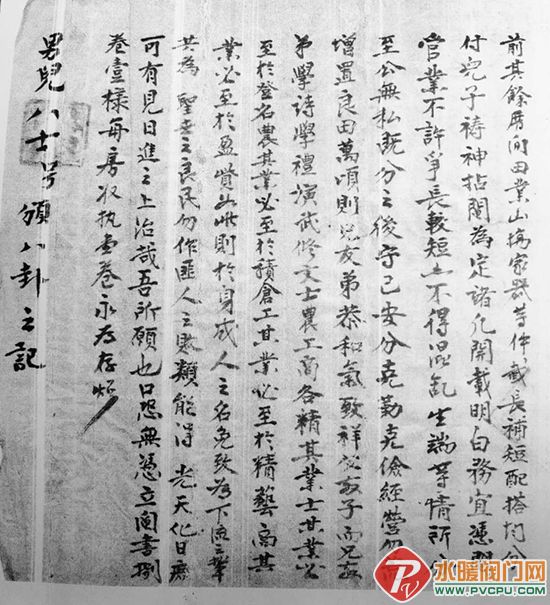 前其餘房间田業山塲家器等件截長補短配搭均勻
付兒子祷神拈鬮為定諸凡開載明白務宜憑鬮
官業不許爭長較短亦不得混乱生端等情所分
至公無私既分之後守己安分克勤克儉經營
增置良田萬頃則兄友弟恭和氣致祥父教子而兄教
弟學詩學禮演武修文士農工商各精其業士其業必
至於登名農其業必至於積倉工其業必至於精藝商其
業必至於盈貲如此則於身成人之名免致為下流之輩
共為聖世之良民勿作匪人之敗類能得光天化日庶
可有見日進之上治哉吾所願也口恐無憑立鬮書捌
卷壹樣每房收执壹卷永為存炤
男兒八士号頒八卦之記
PV
水暖阀门网
WWW.PVCPU.COM